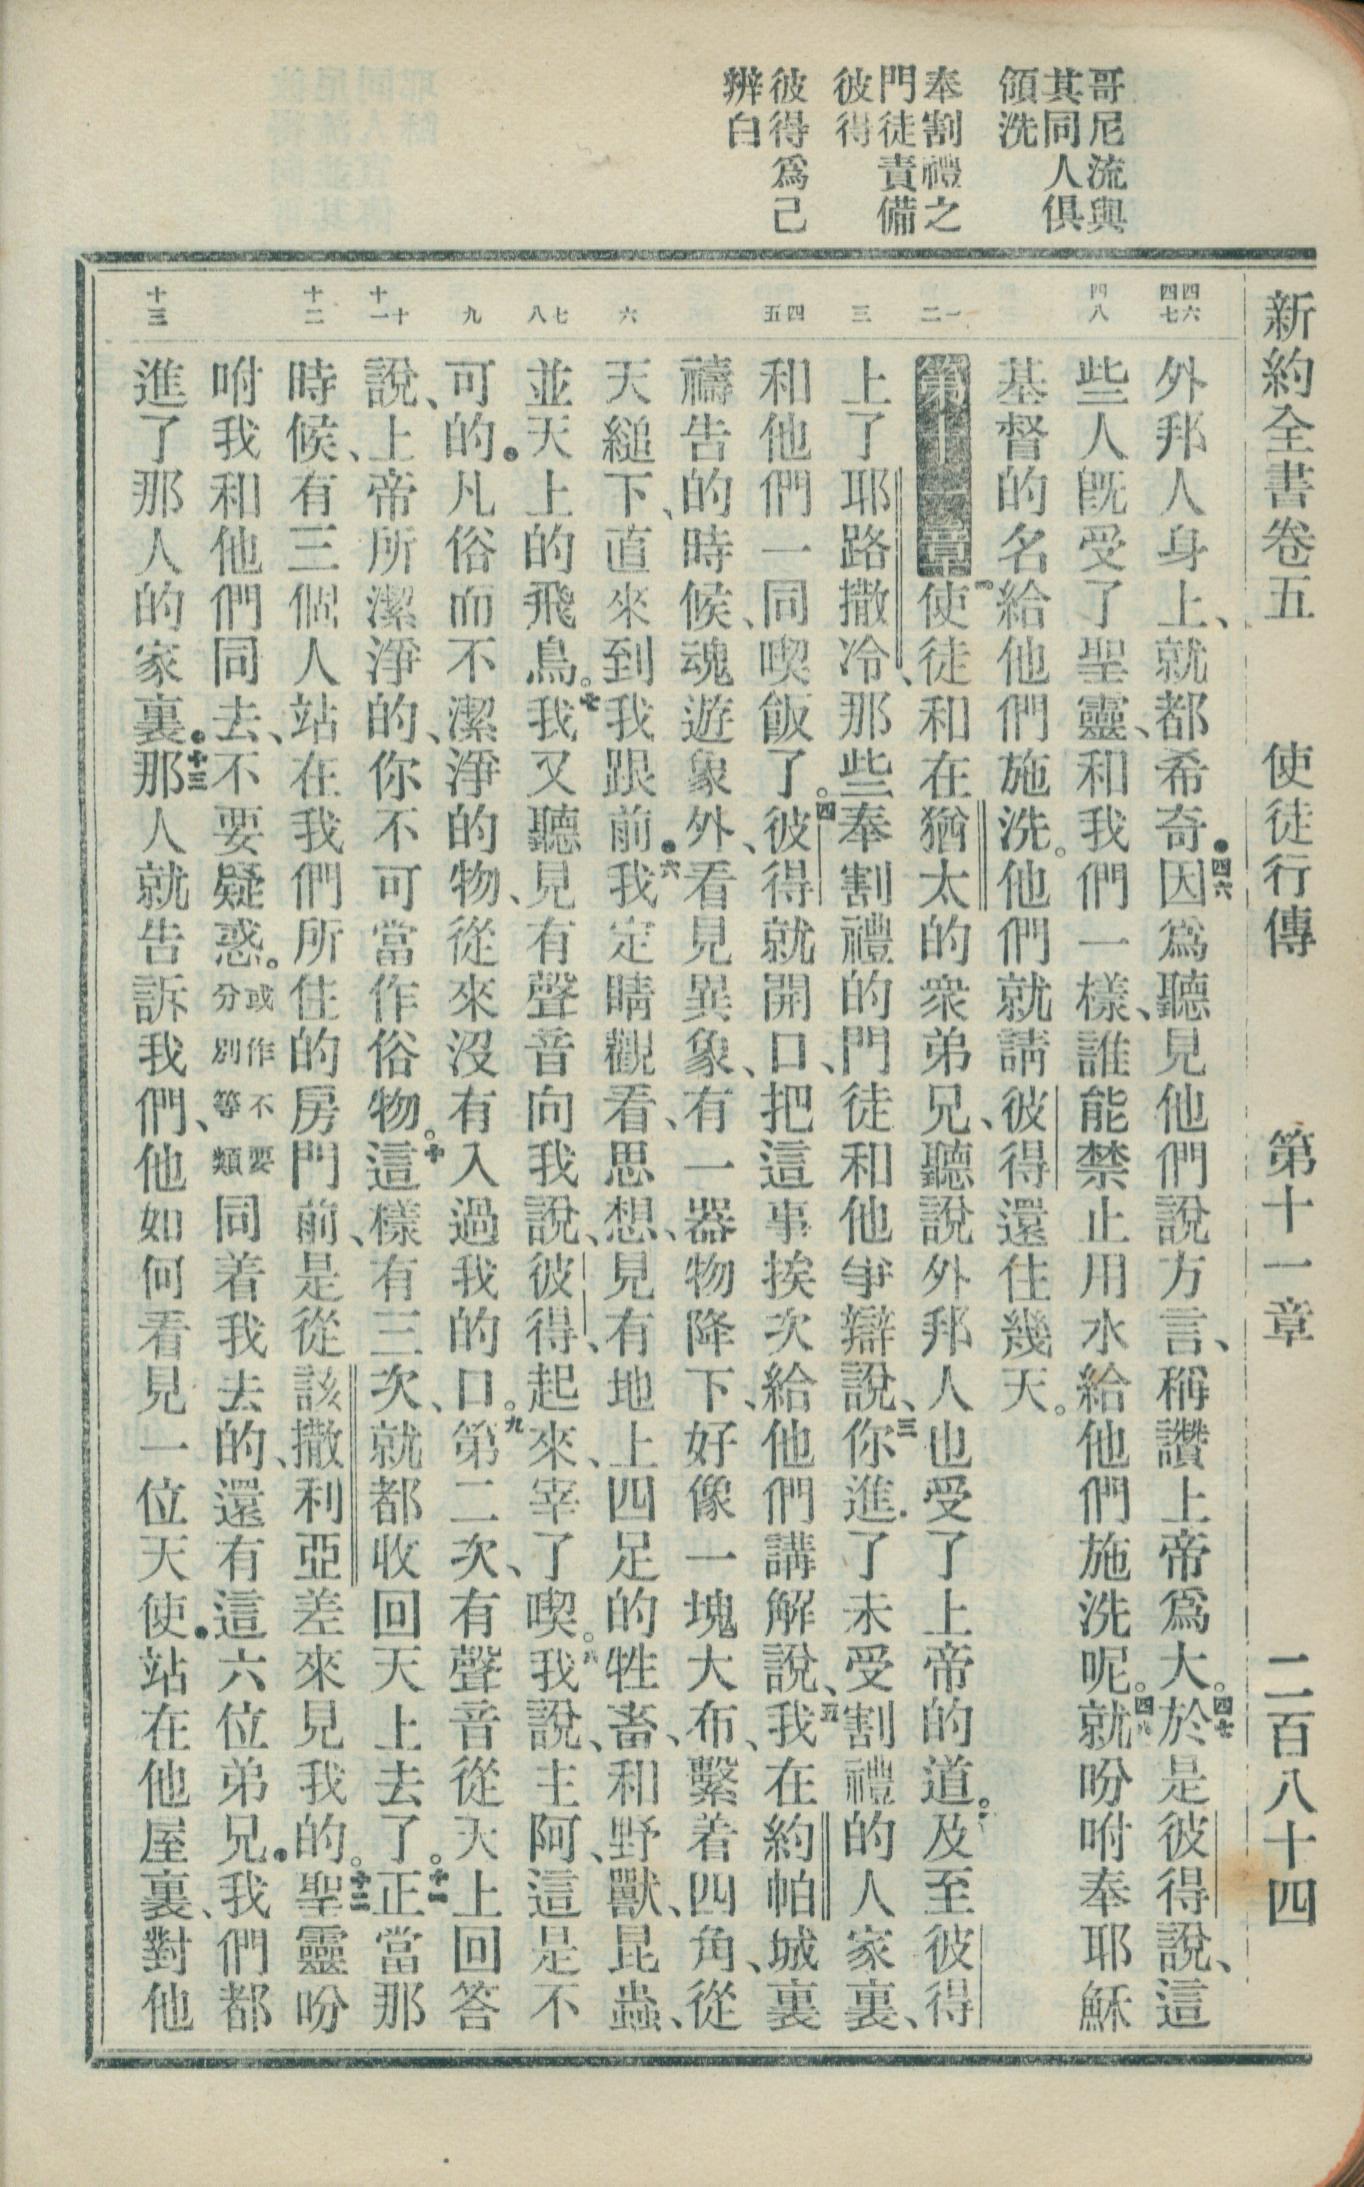 新約全書卷五　使徒行傳　第十一章　二百八十四
哥尼流與
其同人俱
領洗
奉割禮之
門徒責備
彼得
彼得爲己
辨白
四六
四七
四八
一
二
三
四
五
六
七
八
九
十
十一
十二
十三
外邦人身上、就都希奇.四六因爲聽見他們說方言、稱讚上帝爲大。四七於是彼得說、這
些人旣受了聖靈、和我們一樣、誰能禁止用水給他們施洗呢。四八就吩咐奉耶穌
基督的名給他們施洗。他們就請彼得還住幾天。
第十一章一使徒和在猶太的衆弟兄、聽說外邦人也受了上帝的道。二及至彼得
上了耶路撒冷、那些奉割禮的門徒和他爭辯說、三你進了未受割禮的人家裏、
和他們一同喫飯了。四彼得就開口、把這事挨次給他們講解說、五我在約帕城裏
禱告的時候、魂遊象外、看見異象、有一器物降下、好像一塊大布、繫着四角、從
天縋下、直來到我跟前.六我定睛觀看、思想、見有地上四足的牲畜、和野獸、昆蟲、
並天上的飛鳥。七我又聽見有聲音向我說、彼得、起來、宰了喫。八我說、主阿、這是不
可的.凡俗而不潔淨的物、從來沒有入過我的口。九第二次、有聲音從天上回答
說、上帝所潔淨的、你不可當作俗物。十這樣有三次、就都收回天上去了。十一正當那
時候、有三個人站在我們所住的房門前、是從該撒利亞差來見我的。十二聖靈吩
咐我和他們同去、不要疑惑。或作不要分別等類同着我去的、還有這六位弟兄.我們都
進了那人的家裏.十三那人就告訴我們、他如何看見一位天使.站在他屋裏、對他